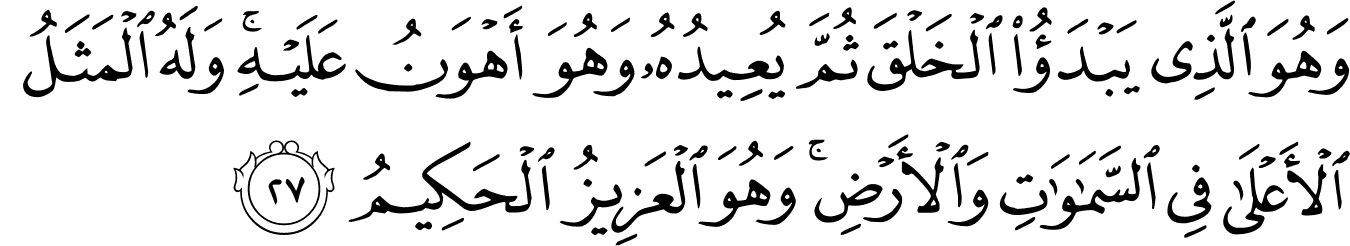 وَهُوَ ٱلَّذِى يَبْدَؤُا۟ ٱلْخَلْقَ ثُمَّ يُعِيدُهُۥ وَهُوَ أَهْوَنُ عَلَيْهِ ۚ وَلَهُ ٱلْمَثَلُ
ٱلْأَعْلَىٰ فِى ٱلسَّمَـٰوَٰتِ وَٱلْأَرْضِ ۚ وَهُوَ ٱلْعَزِيزُ ٱلْحَكِيمُ ٢٧